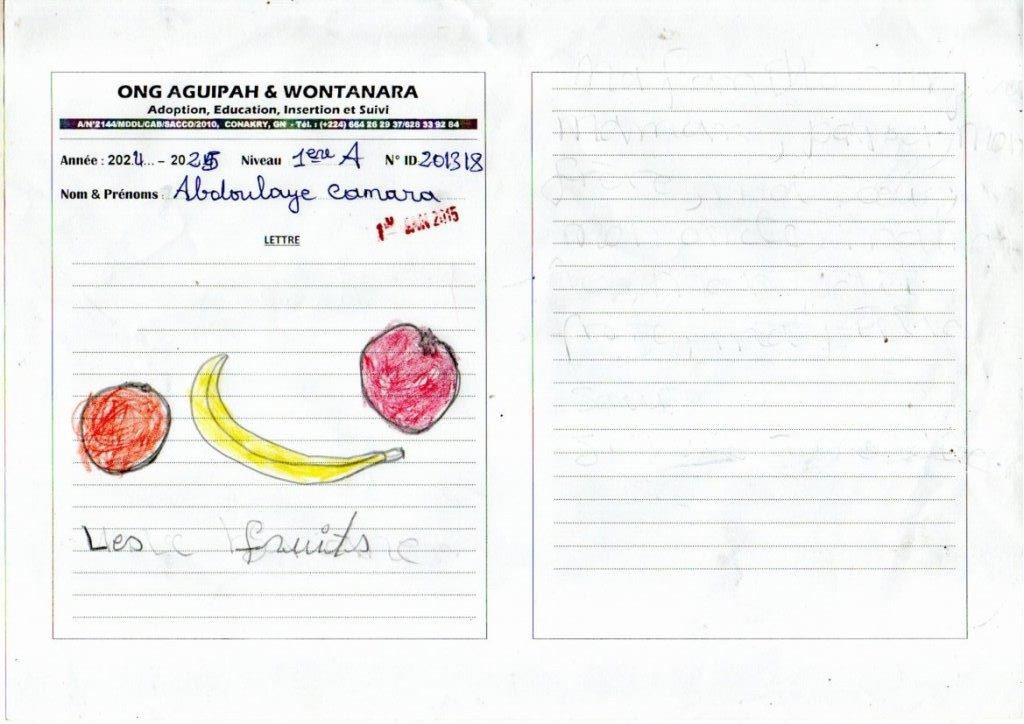 ONG AGUIPAH & WONTANARA
Adoption, Education, Insertion et Suivi
A/N°2144/MDDL/CAB/SACCO/2010, CONAKRY, GN - Tél. : (+224) 664 26 29 37/628 33 92 84
Année : 2024... - 2025 Niveau 1ere A N° ID 201318
Nom & Prénoms : Abdoulaye Camara
1 JAN 2015
LETTRE
Les fruits